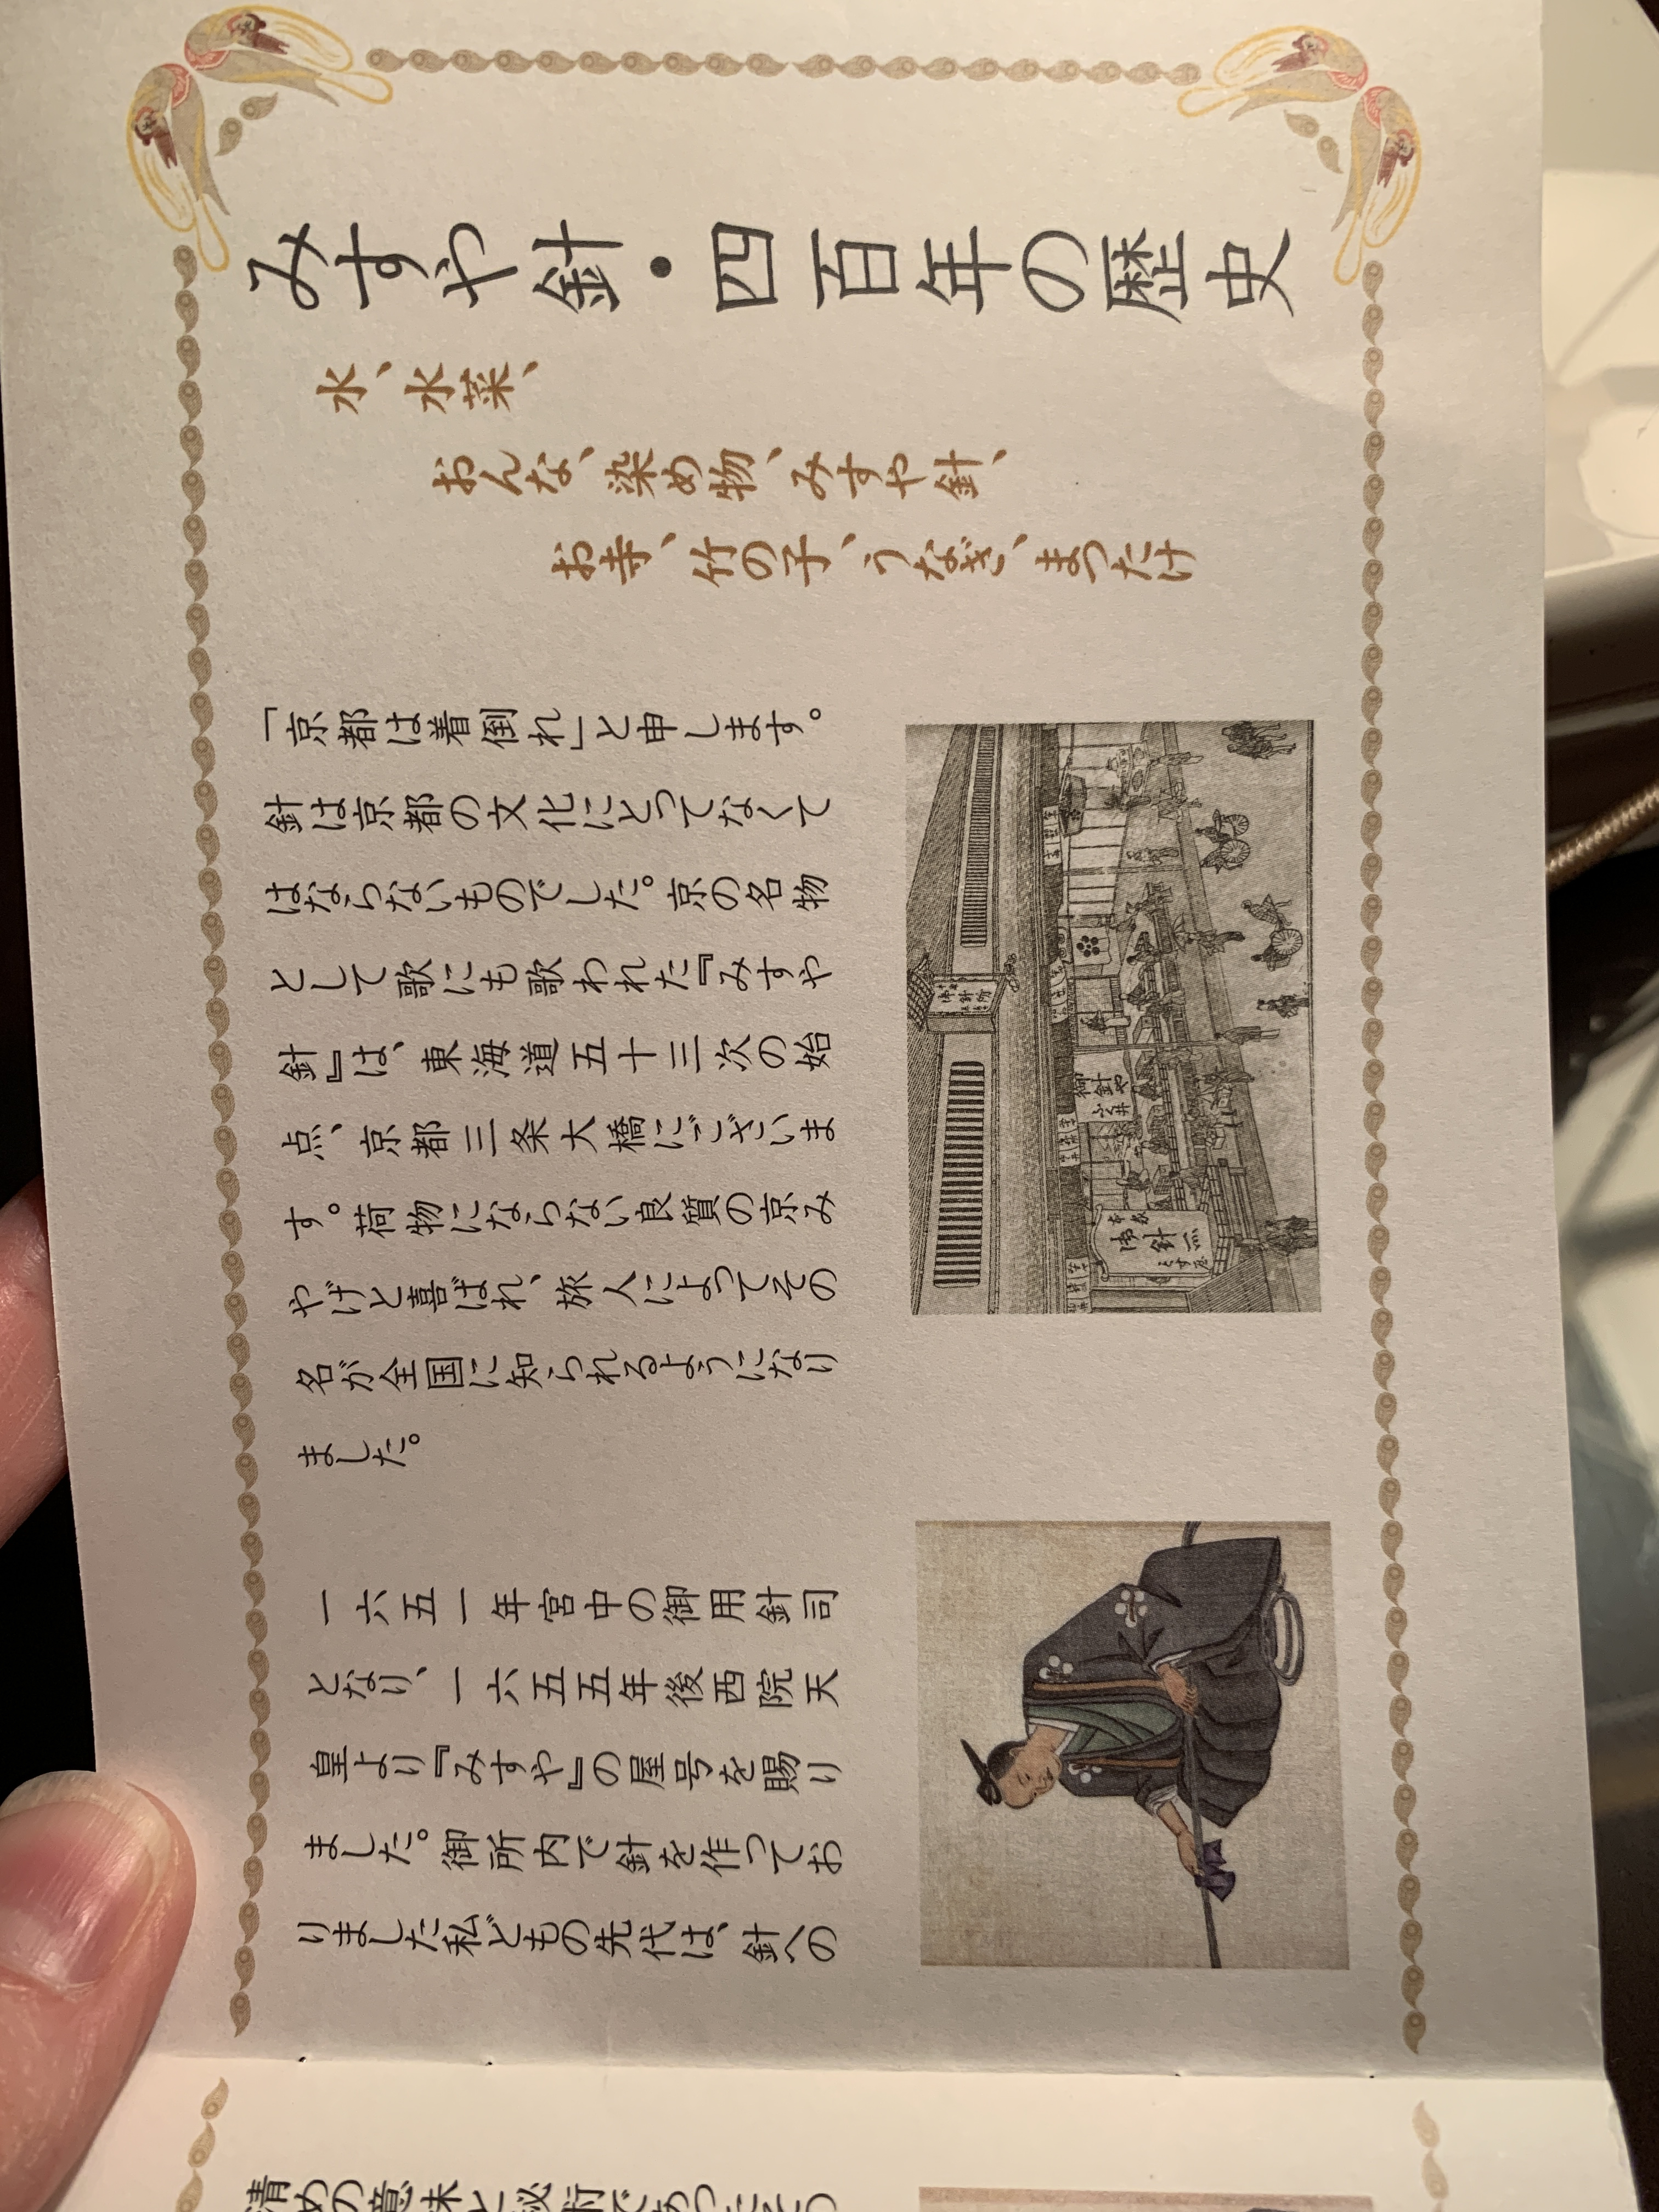 みすや針・四百年の歴史
水、水菜、
おんな、染め物、みすや針、
お寺、竹の子、うなぎ、まつたけ
「京都は着倒れ」と申します。
針は京都の文化にとってなくて
はならないものでした。京の名物
として歌にも歌われた『みすや
針』は、東海道五十三次の始
点、京都三条大橋にございま
す。荷物にならない良質の京み
やげと喜ばれ、旅人によってその
名が全国に知られるようになり
ました。
一六五一年宮中の御用針司
となり、一六五五年後西院天
皇より『みすや』の屋号を賜り
ました。御所内で針を作ってお
りました私どもの先代は、針への
清めの意味と秘術であったそう